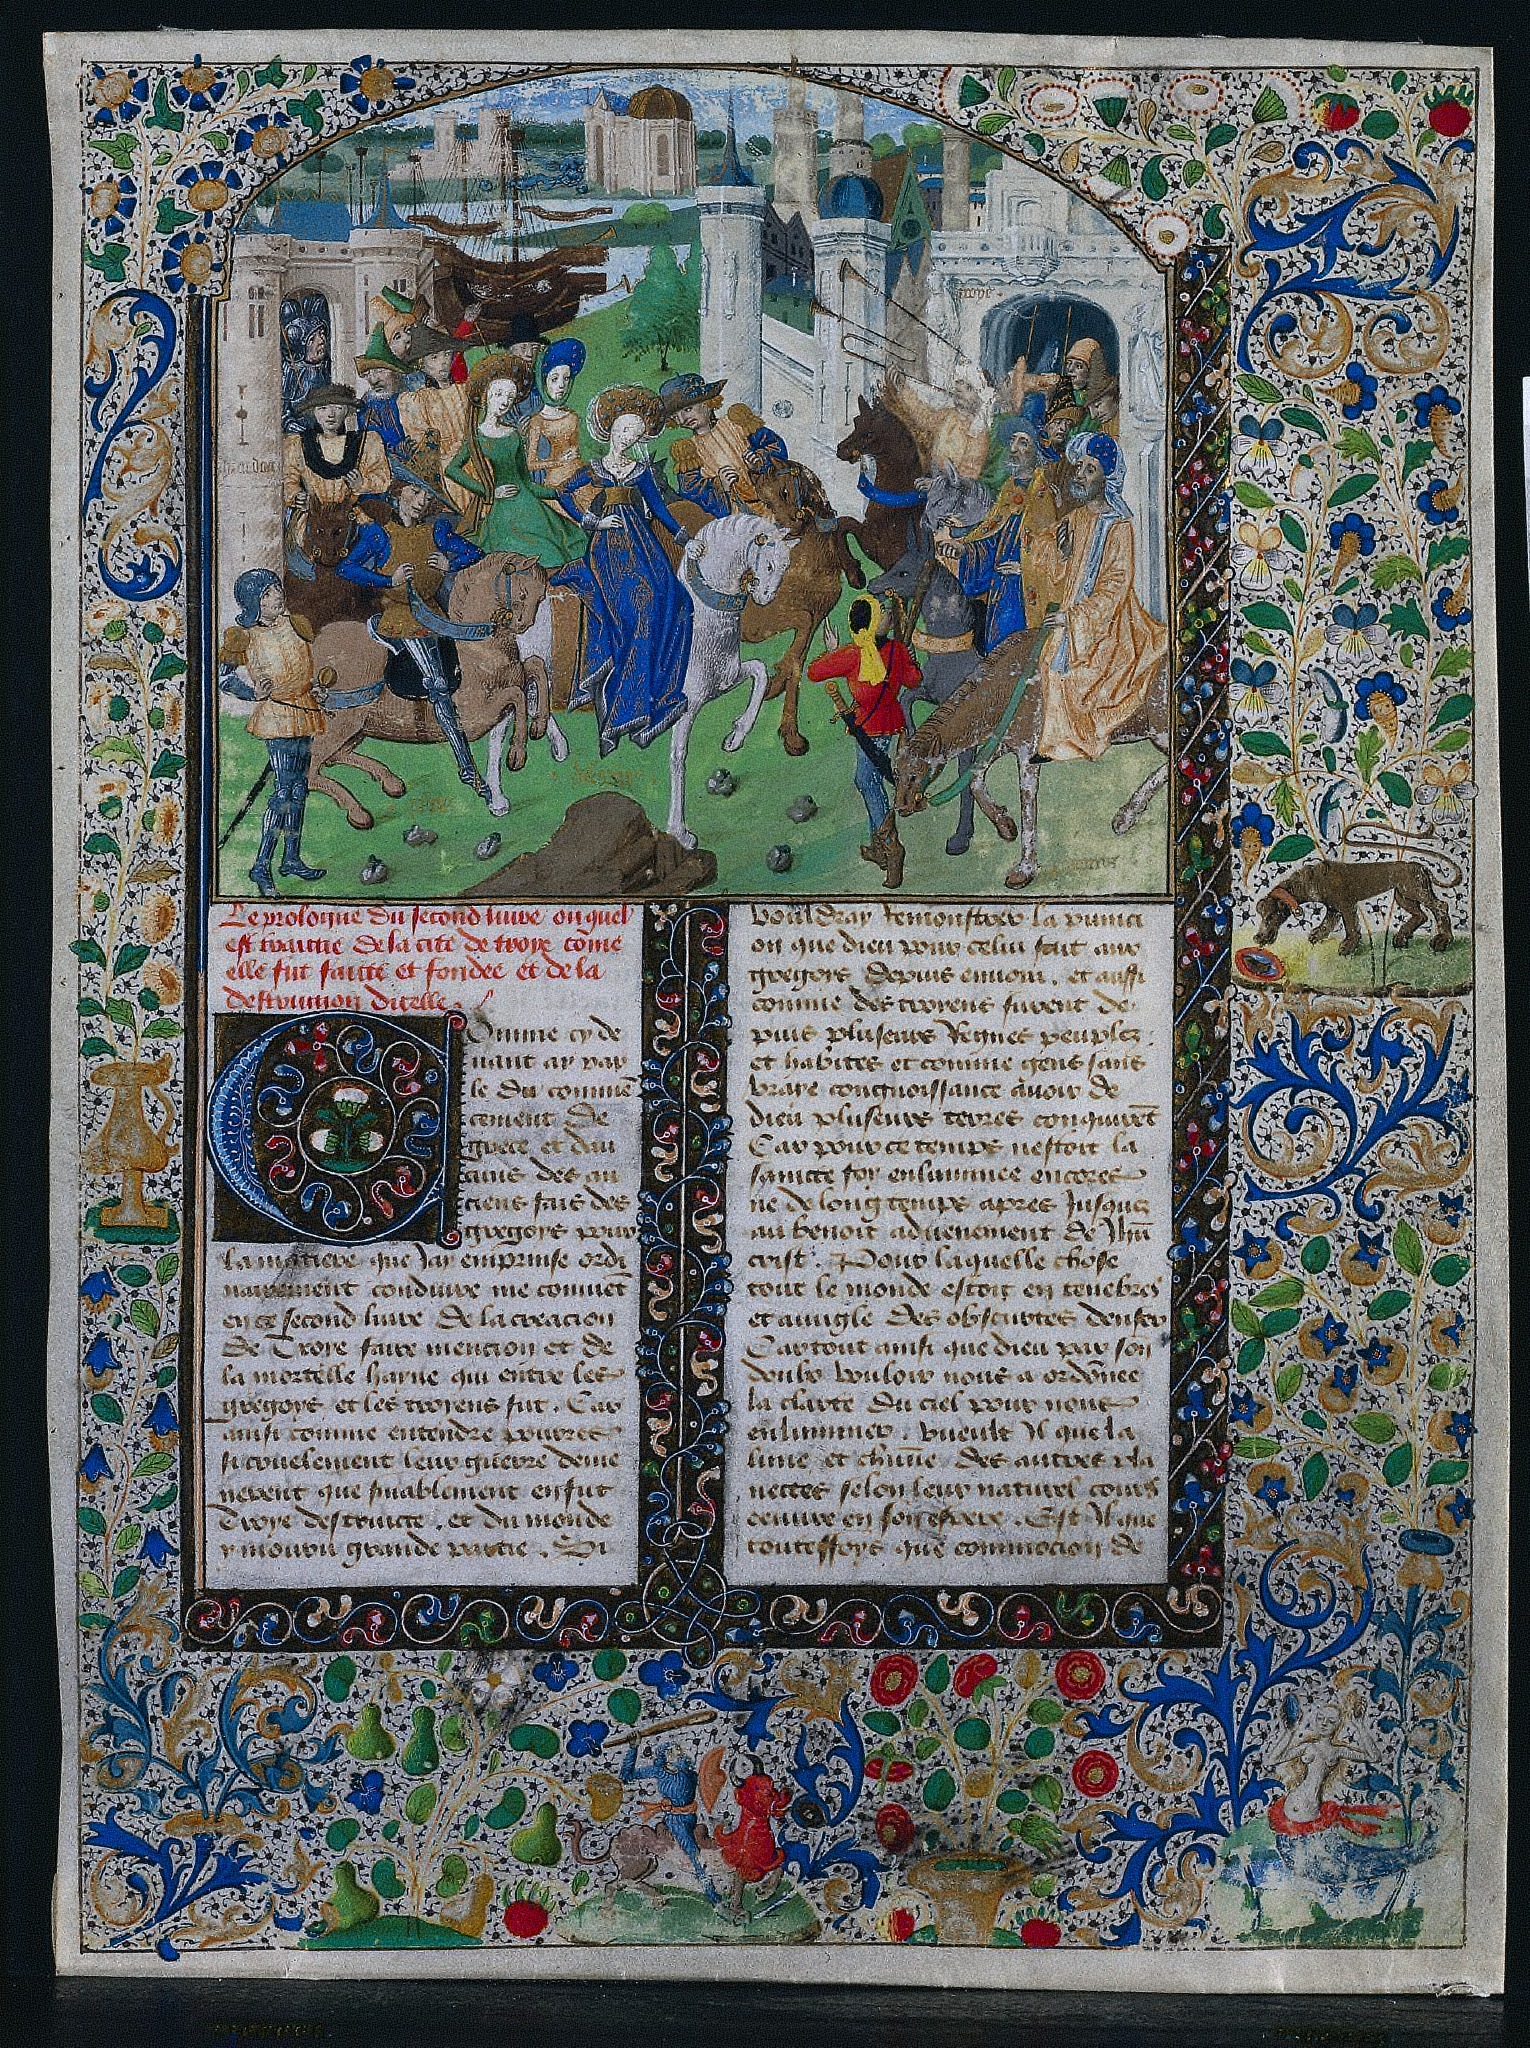 troye
paris
helayne
Le prologue du second livre ou quel
est traittie de la cite de troye come
elle fut faitte et fondee et de la
destruction dicelle.
Comme cy de
uant ay par
le du comme
cement de
grece et dau
cuns des an
ciens fais des
gregois pour
la matiere que jay emprinse ordi
nairement conduire me convient
en ce second livre de la creacion
de Troye faire mencion et de
la mortelle hayne qui entre les
gregoys et les troyens fut. Car
ainsi comme entendre pourres
si cruelement leur guerre deme
nerent que finablement en fut
Troye destruicte. et du monde
y mourru grande partie. Si
vouldray remonstrer la punici
on que dieu pour celui fait aux
gregoys depuis envoia. et aussi
comme des troyens furent de
puis pluseurs Regnes peuplez
et habites et comme gens sans
vraye congnoissance avoir de
dieu pluseurs terres conquirent
Car pour ce temps nestoit la
saincte foy enluminee encores
ne de long temps apres jusques
au benoit advenement de Jhu
crist. Pour laquelle chose
tout le monde estoit en tenebres
et avugle des obscurtes denfer
Car tout ainsi que dieu par son
doulx vouloir nous a ordonne
la clarte du ciel pour nous
enluminer. vueult Il que la
lune et chune des autres pla
nettes selon leur naturel cours
euvre en son Est Il que
touteffoys que commocion de